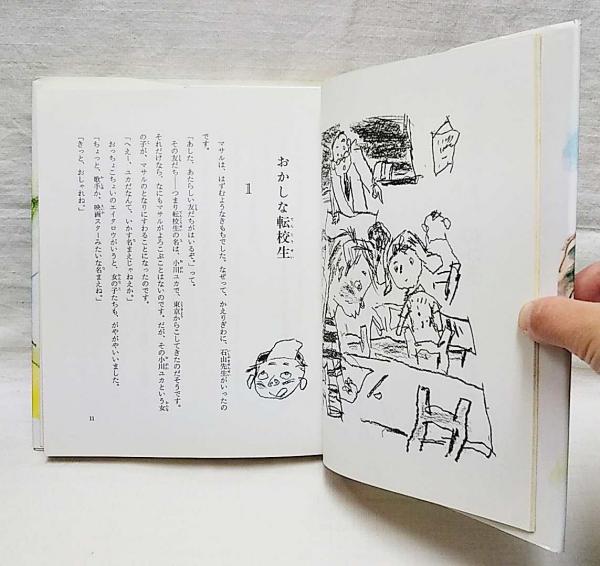 おかしな転校生
1
マサルは、はずむようなきもちでした。なぜって、かえりぎわに、石山先生がいったの
です。
「あした、あたらしい友だちがはいるぞ。」って。
その友だち――つまり転校生の名は、小川ユカで、東京からこしてきたのだそうです。
それだけなら、なにもマサルがよろこぶことはないのです。だが、その小川ユカという女
の子が、マサルのとなりにすわることになったのです。
「へえー、ユカだなんて、いかす名まえじゃねえか。」
おっちょこちょいのエイタロウがいうと、女の子たちも、がやがやいいました。
「ちょっと、歌手か、映画スターみたいな名まえね。」
「きっと、おしゃれね。」
11